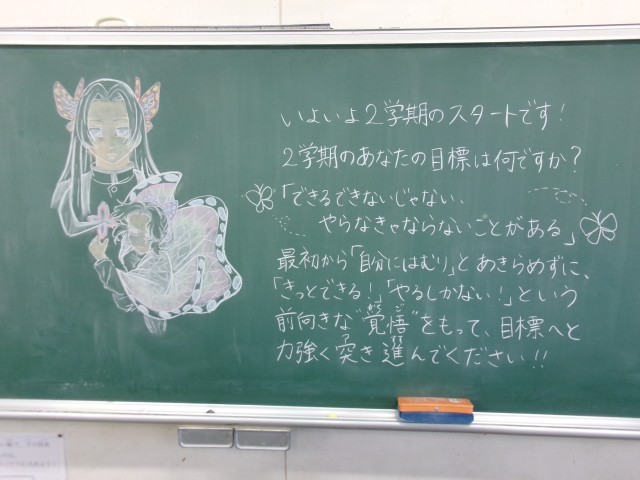 いよいよ2学期のスタートです!
2学期のあなたの目標は何ですか?
「できるできないじゃない、
やらなきゃならないことがある」
最初から「自分にはむり」とあきらめずに、
「きっとできる!」「やるしかない!」という
前向きな"覚悟"をもって、目標へと
力強く突き進んでください!!